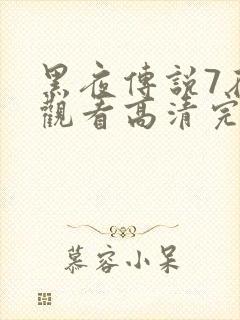 黑夜傳說7在
觀看高清完
慕容小呆